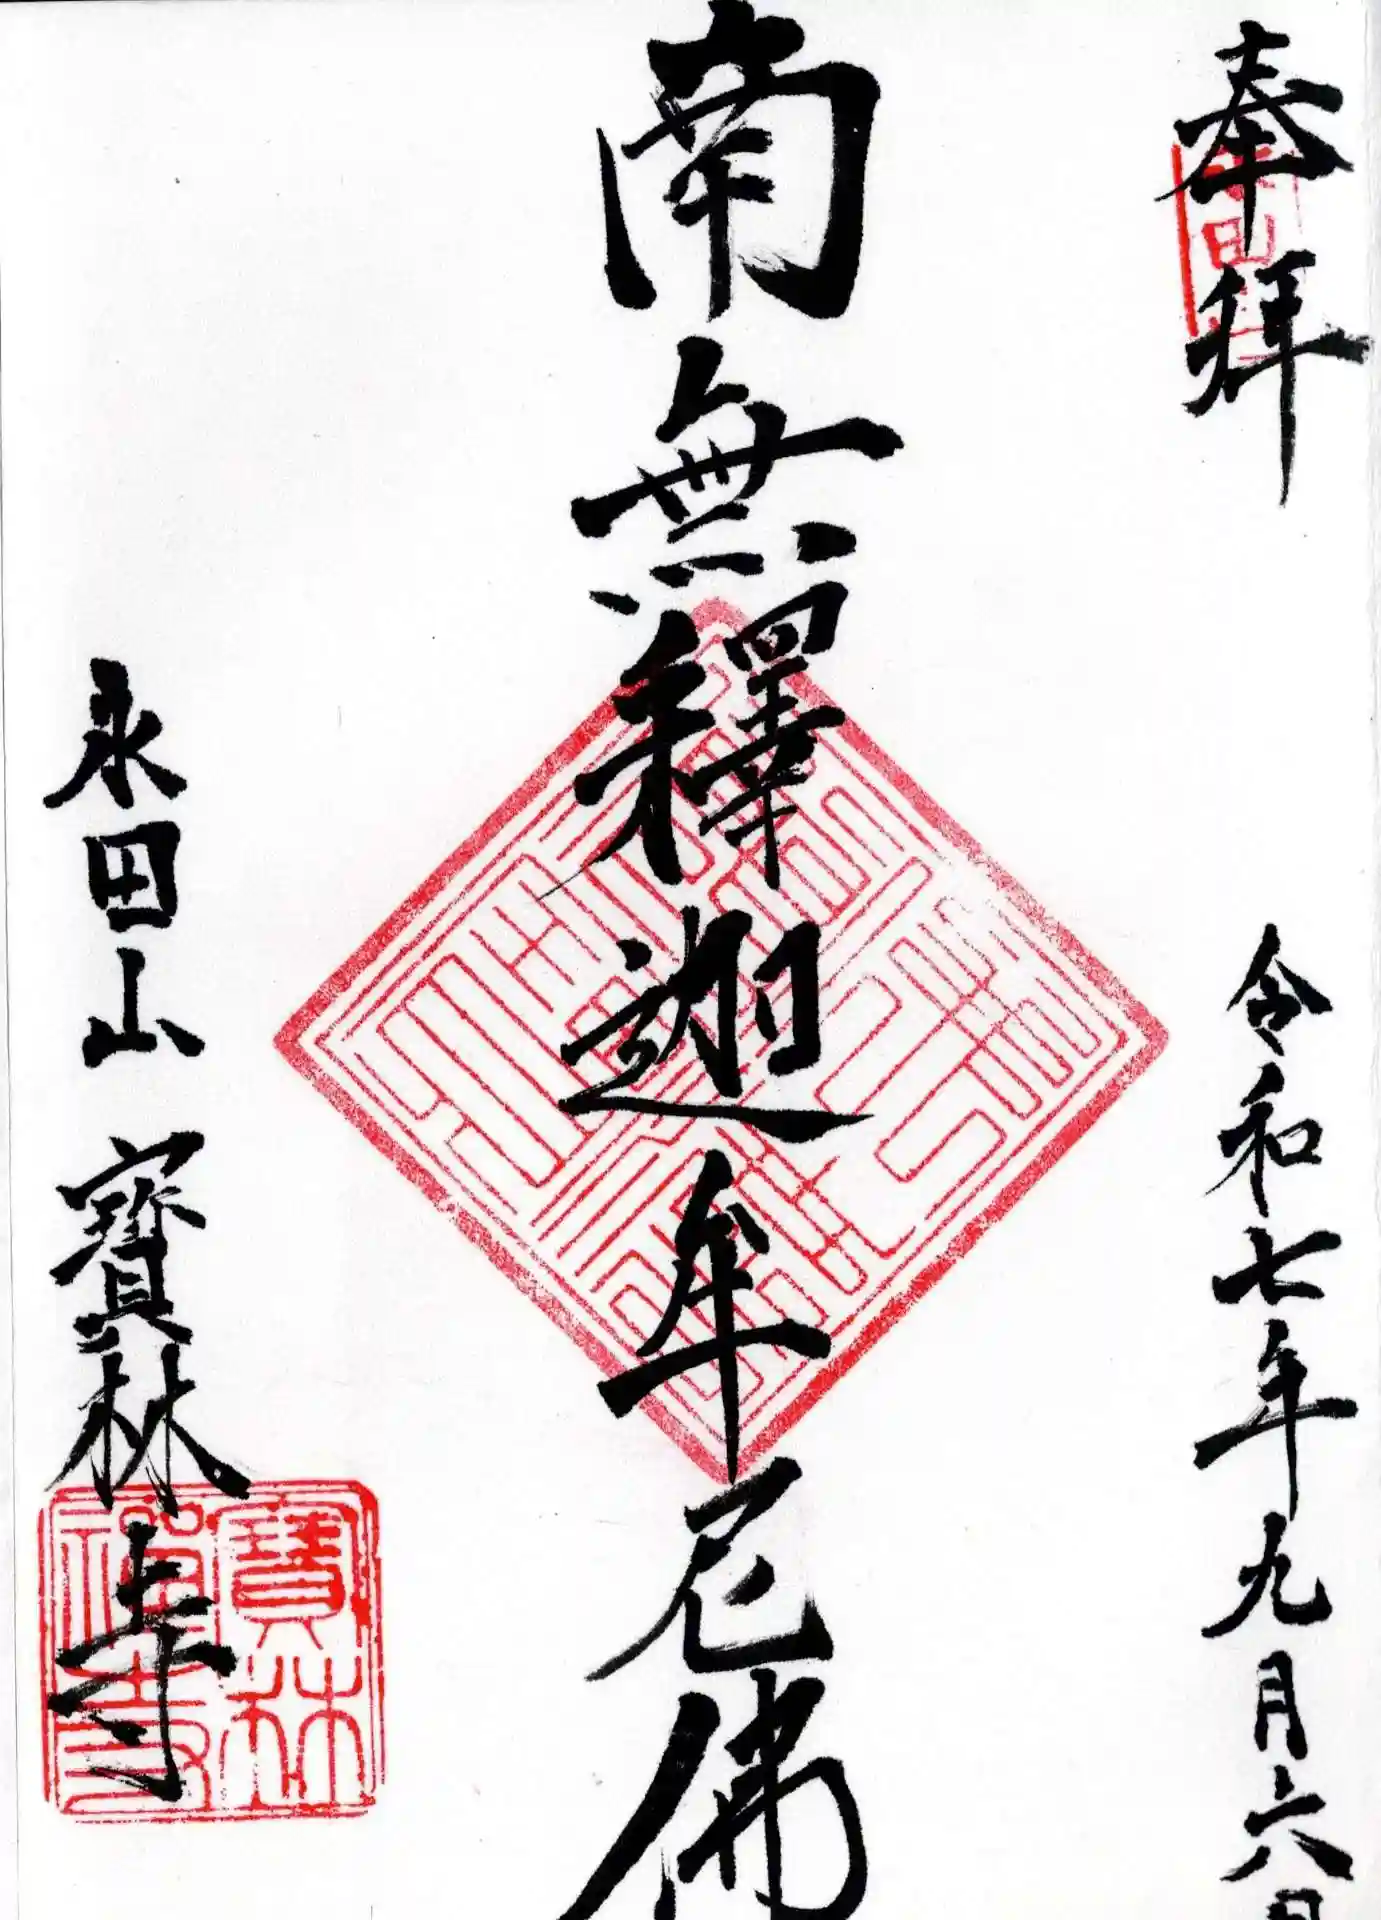 奉拝
令和七年九月六日
南無釋迦牟尼佛
永田山 寳林寺
寳林禅寺